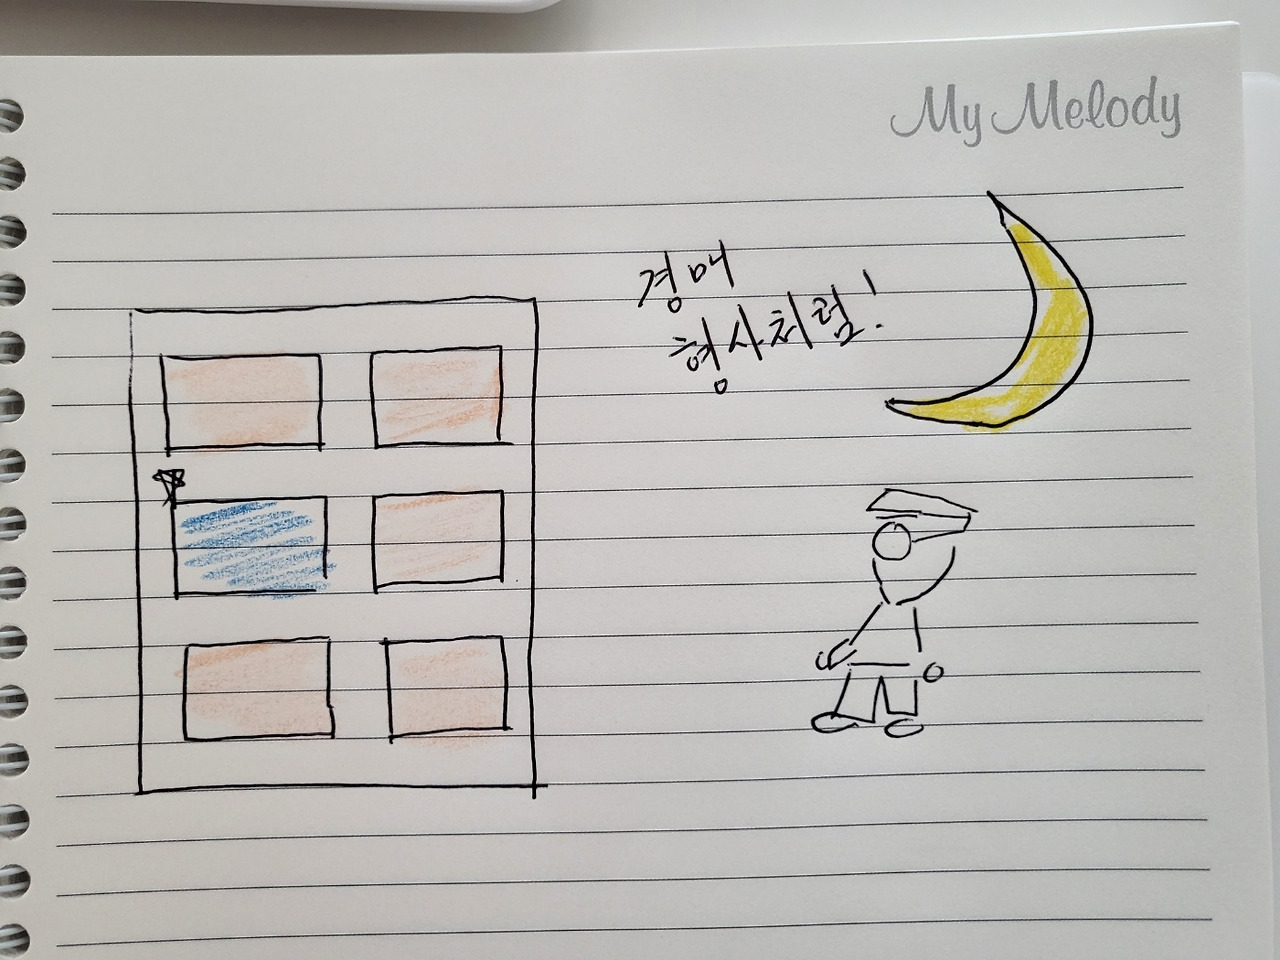 My Melody
경매
형사처럼!